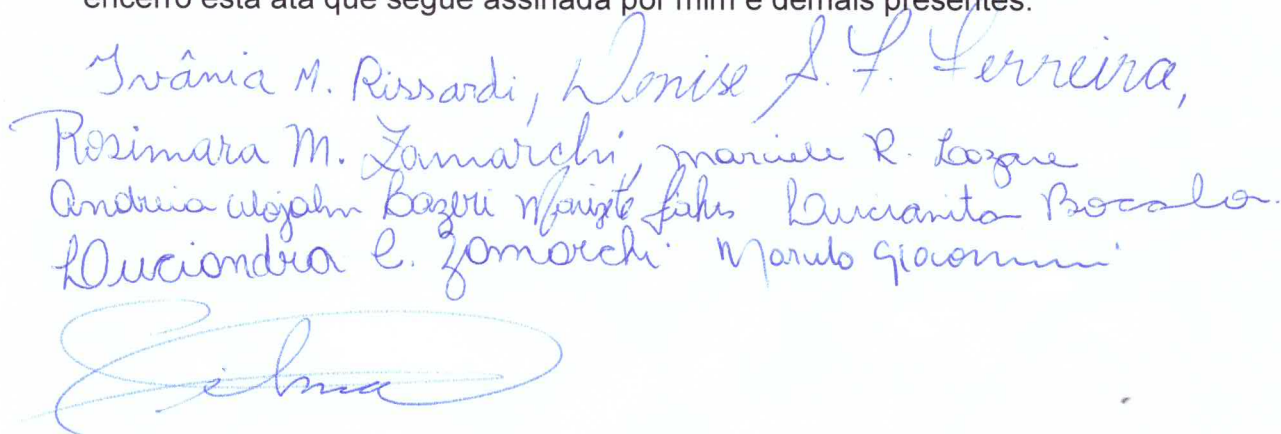 encerro esta ata que segue assinada por mim e demais presentes.
Ivânia M. Rissardi, Denise S. F. Ferreira,
Rosimara M. Zamarchi, Mariele R. Lozare
Andreia Wojahn Bazeri Marizete Lucianita Bocalo.
Luciandra C. Zamarchi Marulo Giacomini